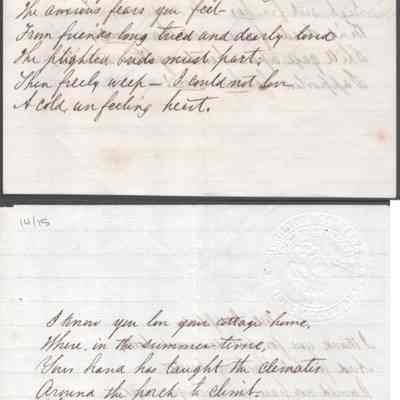 The anxious fears you feel—
From friends long tried and dearly loved
The plighted bride must part;
Then freely weep — I could not love
A cold, unfeeling heart.
14/15
I know you love your cottage home,
Where in the summer time,
Your hand has taught the clematis
Around the porch to climb—